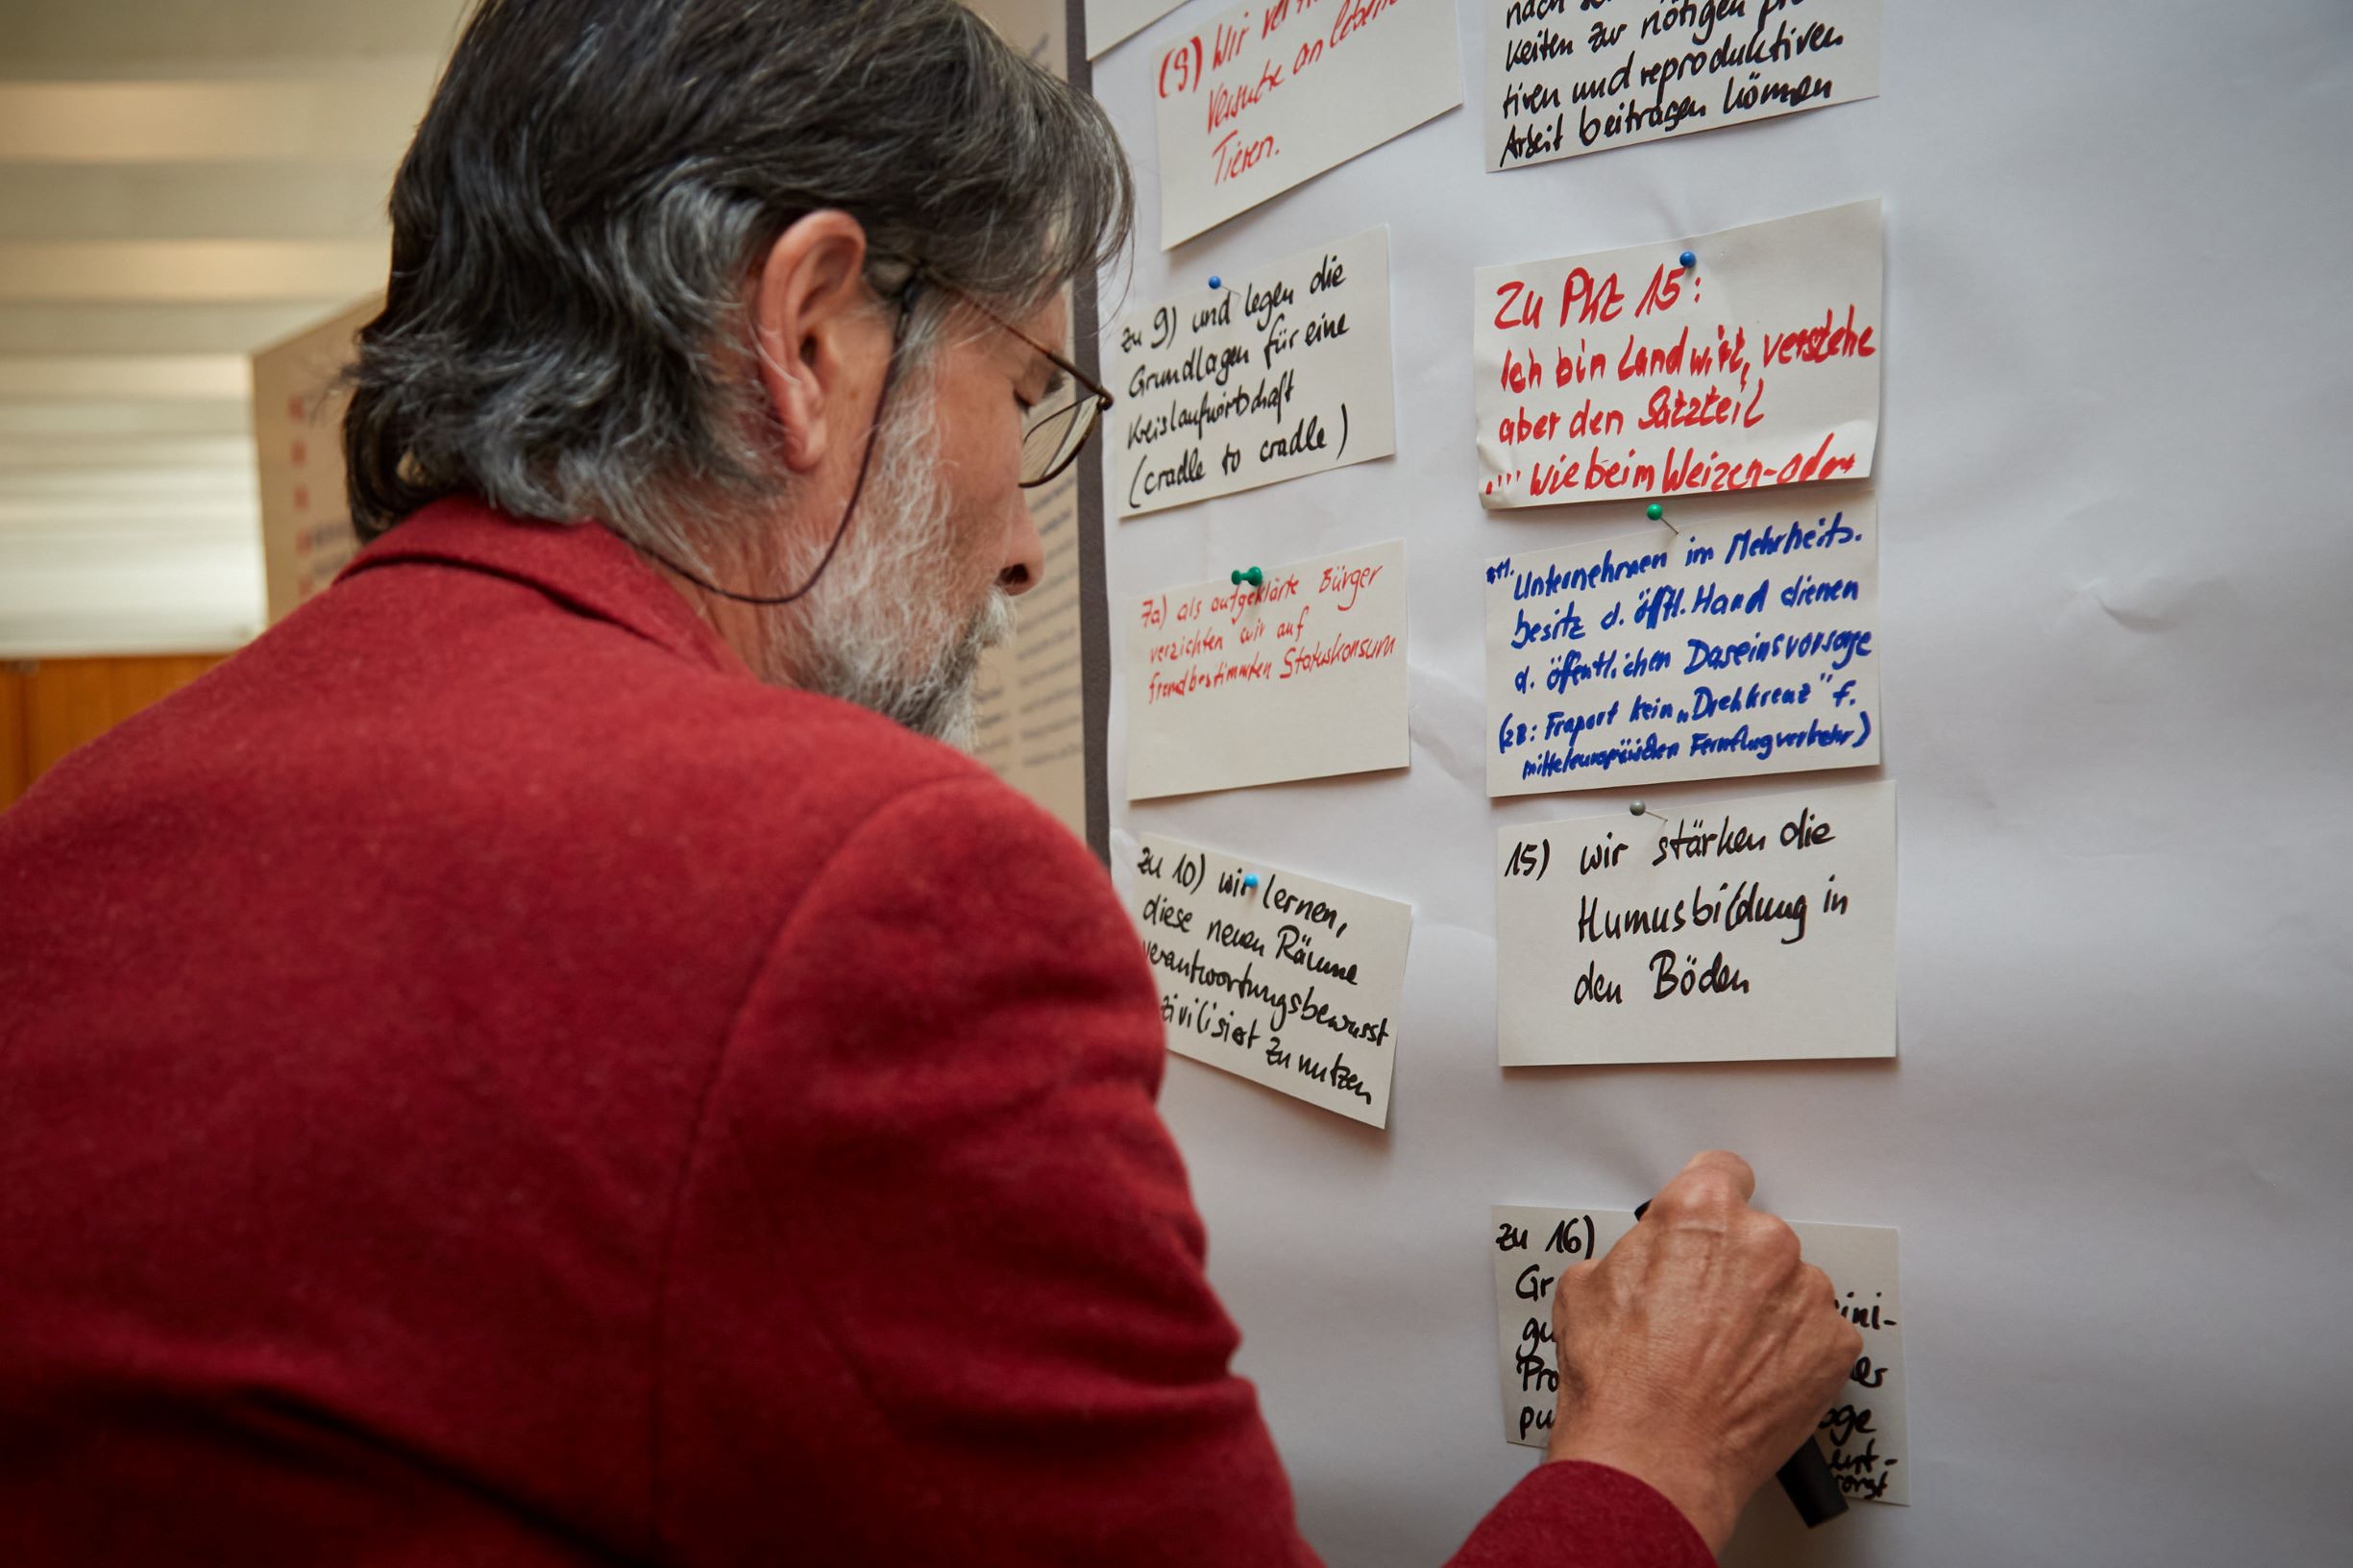 (9) Wir
Versuche an leben
Tieren.
zu 9) und legen die
Grundlagen für eine
Kreislaufwirtschaft
(cradle to cradle)
7a) als aufgeklärte Bürger
verzichten wir auf
fremdbestimmten Statuskonsum
zu 10) wir lernen,
diese neuen Räume
verantwortungsbewusst
zivilisiert zu nutzen
nach
keiten zur nötigen pro
tiven und reproduktiven
Arbeit beitragen können
Zu Pkt 15:
Ich bin Landwirt, verstehe
aber den Satzteil
.... wie beim Weizen- oder
Unternehmen im Mehrheits-
besitz d. öfftl. Hand dienen
d. öffentlichen Daseinsvorsorge
(zB: Fraport kein „Drehkreuz" f.
mitteleuropäischen Fernflugverkehr)
15) wir stärken die
Humusbildung in
den Böden
zu 16)
Gr
gu ini-
Pro
pu